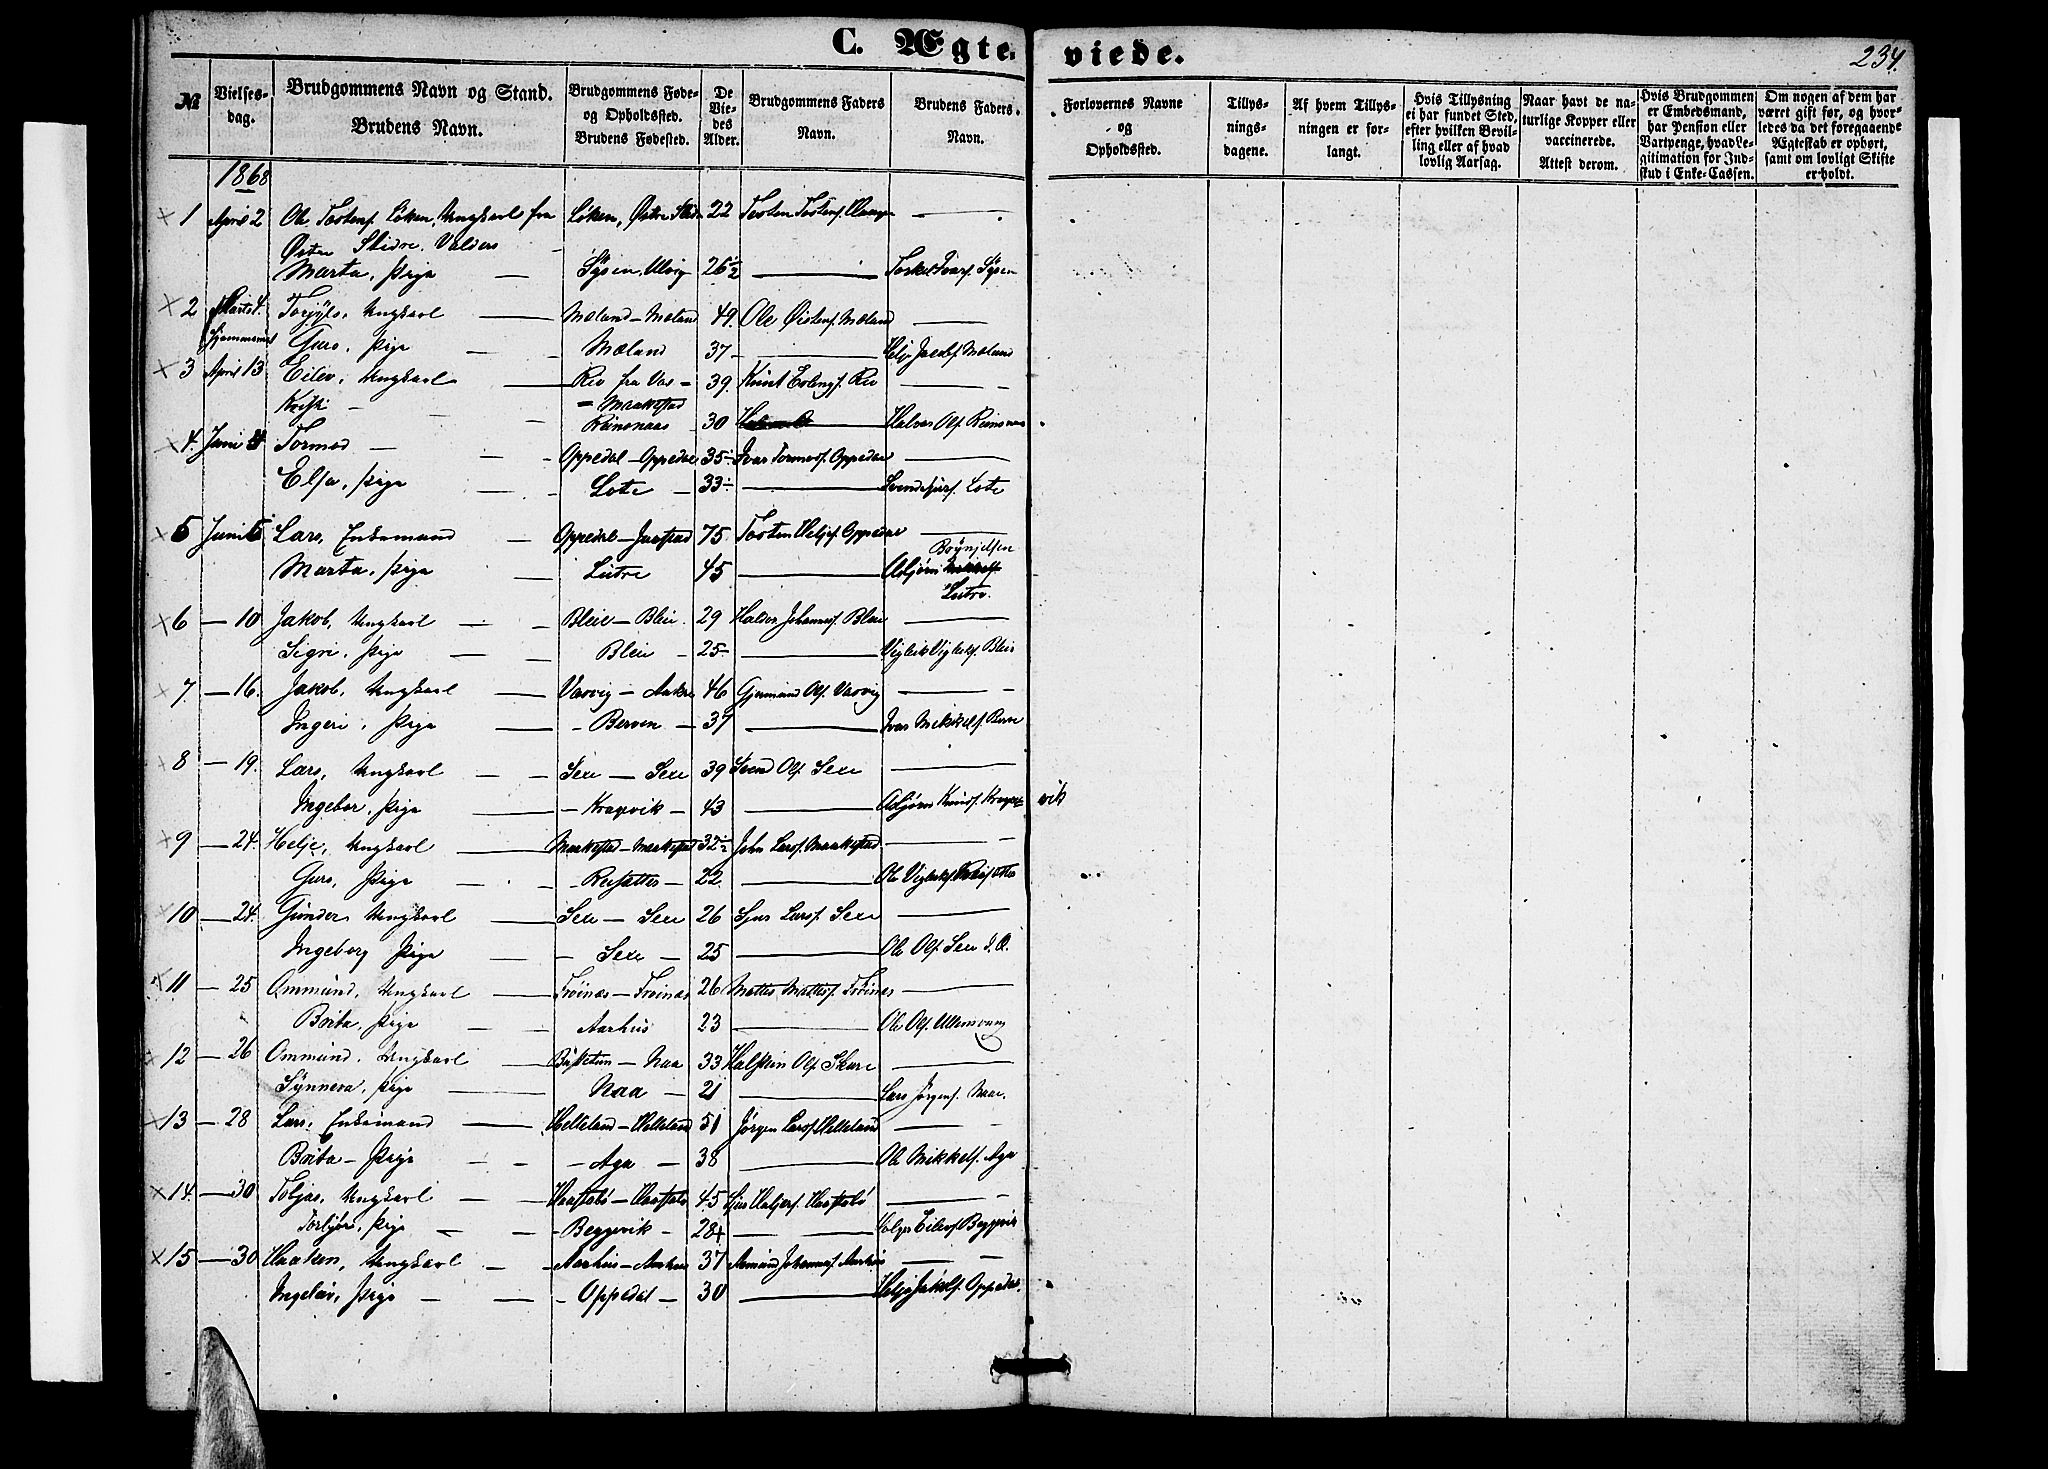 C. Ægteviede.
234.
№
Vielsesdag.
Brudgommens Navn og Stand.
Brudens Navn.
Brudgommens Føde- og Opholdssted.
Brudens Fødested.
De Viedes Alder.
Brudgommens Faders Navn.
Brudens Faders Navn.
Forlovernes Navne og Opholdssted.
Tillysningsdagene.
Af hvem Tillysningen er forlangt.
Hvis Tillysning ei har fundet Sted, efter hvilken Bevilling eller af hvad lovlig Aarsag.
Naar havt de naturlige Kopper eller vaccinerede. Attest derom.
Hvis Brudgommen er Embedsmand, har Pension eller Vartpenge, hvad Legitimation for Indskud i Enke-Cassen.
Om nogen af dem har været gift før, og hvorledes da det foregaaende Ægteskab er ophørt, samt om lovligt Skifte er holdt.
1868
× 1 April 2 Ole Tostens. Løken, Ungkarl fra Løken, Østre Slidre 22 Tosten Tostens. —
Østre Slidre, Valders
Marta, Pige — Sysen, Ulvig 26½ — Torkel Ivars. Sysen
× 2 Marts 4. Ungkarl — Mæland – Mæland 49. Ole Østens. Mæland —
Hjemmeviet Guro, Pige — Mæland 37 — Helje Jacobs. Mæland
× 3 April 13 Eilev, Ungkarl — Rei fra Vos – 39. Knut Erlings. Rei —
= Maakestad
— Reisnaas 30 — Halvor Ols.
× 4. Juni Tormod — Oppedal – Oppedal 35 Ivar Tormods. Oppedal —
Elsa, Pige — Lote – 33 — Lote
× 5 Juni 5 Lars, Enkemand Oppedal – Jaastad 75 Tosten Heljes. Oppedal —
Brynjelsen
Marta, Pige — Lutro 45 — Asbjørn
Lutro.
× 6 — 10 Jakob, Ungkarl — Bleie – Bleie 29 Haldor Johanness. Bleie —
Segri, Pige — Bleie – 25 — Vigleik Vigleiks. Bleie
× 7. — 16. Jakob, Ungkarl — Varvig – Aakre 46 Gjermund Ols. Varvig —
Ingeri, Pige — Berven – 37 — Ivar Mikkels. Berve
× 8 — 19. Lars, Ungkarl — Sexe – Sexe 39 Svend Ols. Sexe —
Ingebor, Pige — Krossvik – 43 — Asbjørn Knuds. Krossvik
× 9 — 24. Helje, Ungkarl — Maakestad – Maakestad 32½ John Larss. Maakestad —
Guro, Pige — Reisæter – 22 — Ole Vigleiks. Reisæter
× 10 — 24. Gunder Ungkarl — Sexe – Sexe 26 Sjur Larss. Sexe —
Ingeborg Pige — Sexe – 25 — Ole Ols. Sexe
× 11 — 25 Ommund, Ungkarl — Trøinæs – Trøinæs 26 Mattes Mattess. Trøinæs —
Brita, Pige — Aarhus 23 — Ole Ols. Ullensvang
× 12 — 26 Ommund, Ungkarl — – Naa 33 Halstein Ols. Skare —
Synneva, Pige — Naa – 21 — Lars Jørgens. Naae.
× 13 — 28 Lars, Enkemand — Helleland – Helleland 51 Jørgen Larss. Helleland —
Brita – Pige — Aga – 38 — Ole Mikkels. Aga
× 14. — 30 Toljas, Ungkarl — Haastabø – Haastabø 45 Sjur Haastabø —
Torbjør, Pige — Beggevik – 28 — Eilevs. Beggevik
× 15 — 30 Haaken, Ungkarl — Aarhus – Aarhus 37 Amund Johanness. Aarhus —
Ingelav, Pige — Oppedal – 30 — Helje Jakobs. Oppedal.